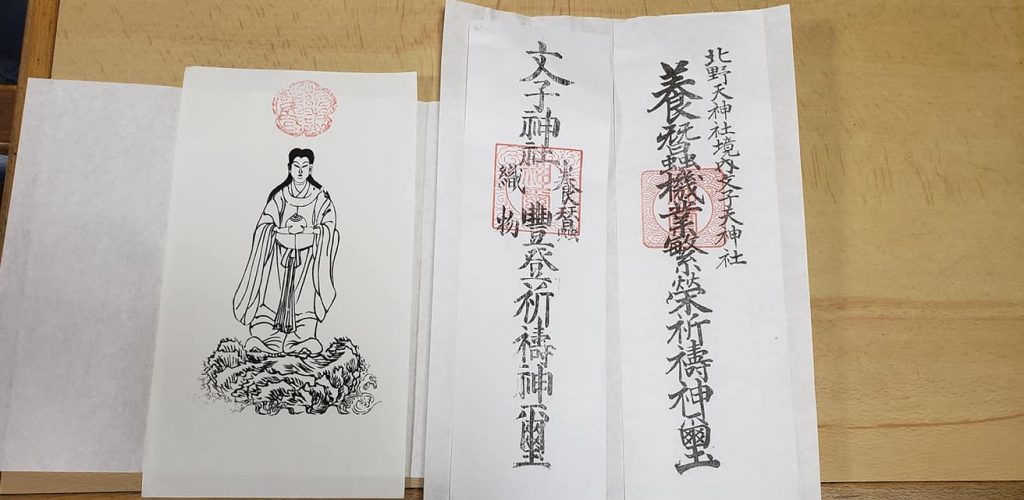 北野天神社境内文子天神社
養蠶機業繁榮祈禱神璽
文子神社
養蠶
織物
豐登祈禱神璽